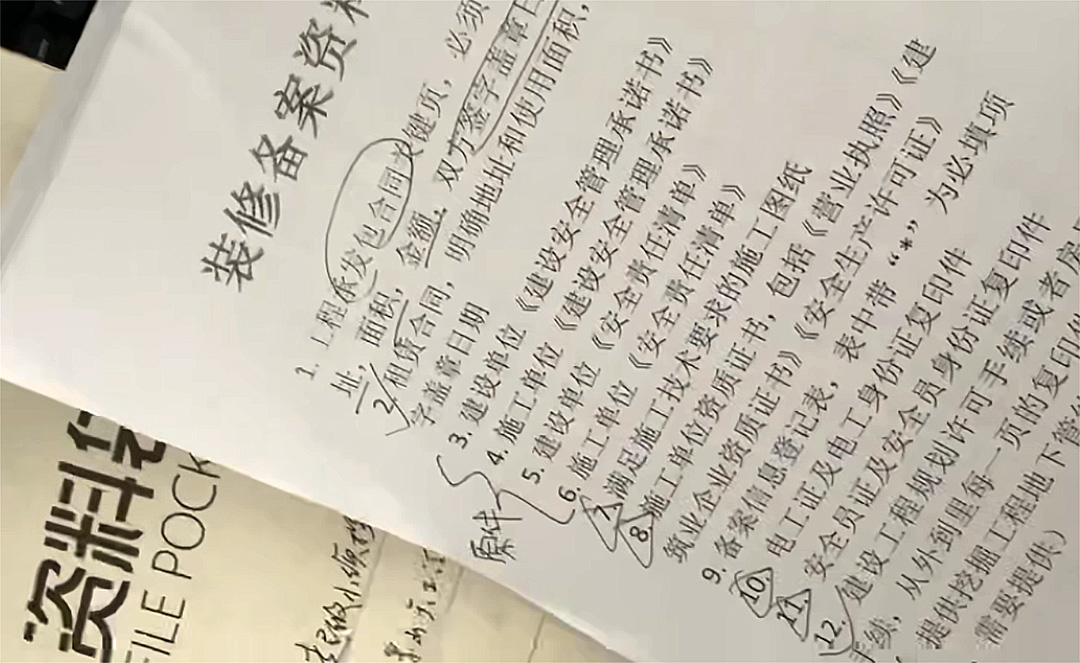 装修备案资料
1. 工程承发包合同关键页，必须
址，面积，金额，双方签字盖章日
2、租赁合同，明确地址和使用面积，
字盖章日期
3. 建设单位《建设安全管理承诺书》
4. 施工单位《建设安全管理承诺书》
5. 建设单位《安全责任清单》
6. 施工单位《安全责任清单》
7. 满足施工技术要求的施工图纸
8. 施工单位资质证书，包括《营业执照》《建
筑业企业资质证书》《安全生产许可证》
9. 备案信息登记表，表中带“*”为必填项
10. 电工证及电工身份证复印件
11. 安全员证及安全员身份证复印件
12. 建设工程规划许可手续或者房
手续，从外到里每一页的复印件
提供挖掘工程地下管
需要提供）
原件
资料
FILE POCK